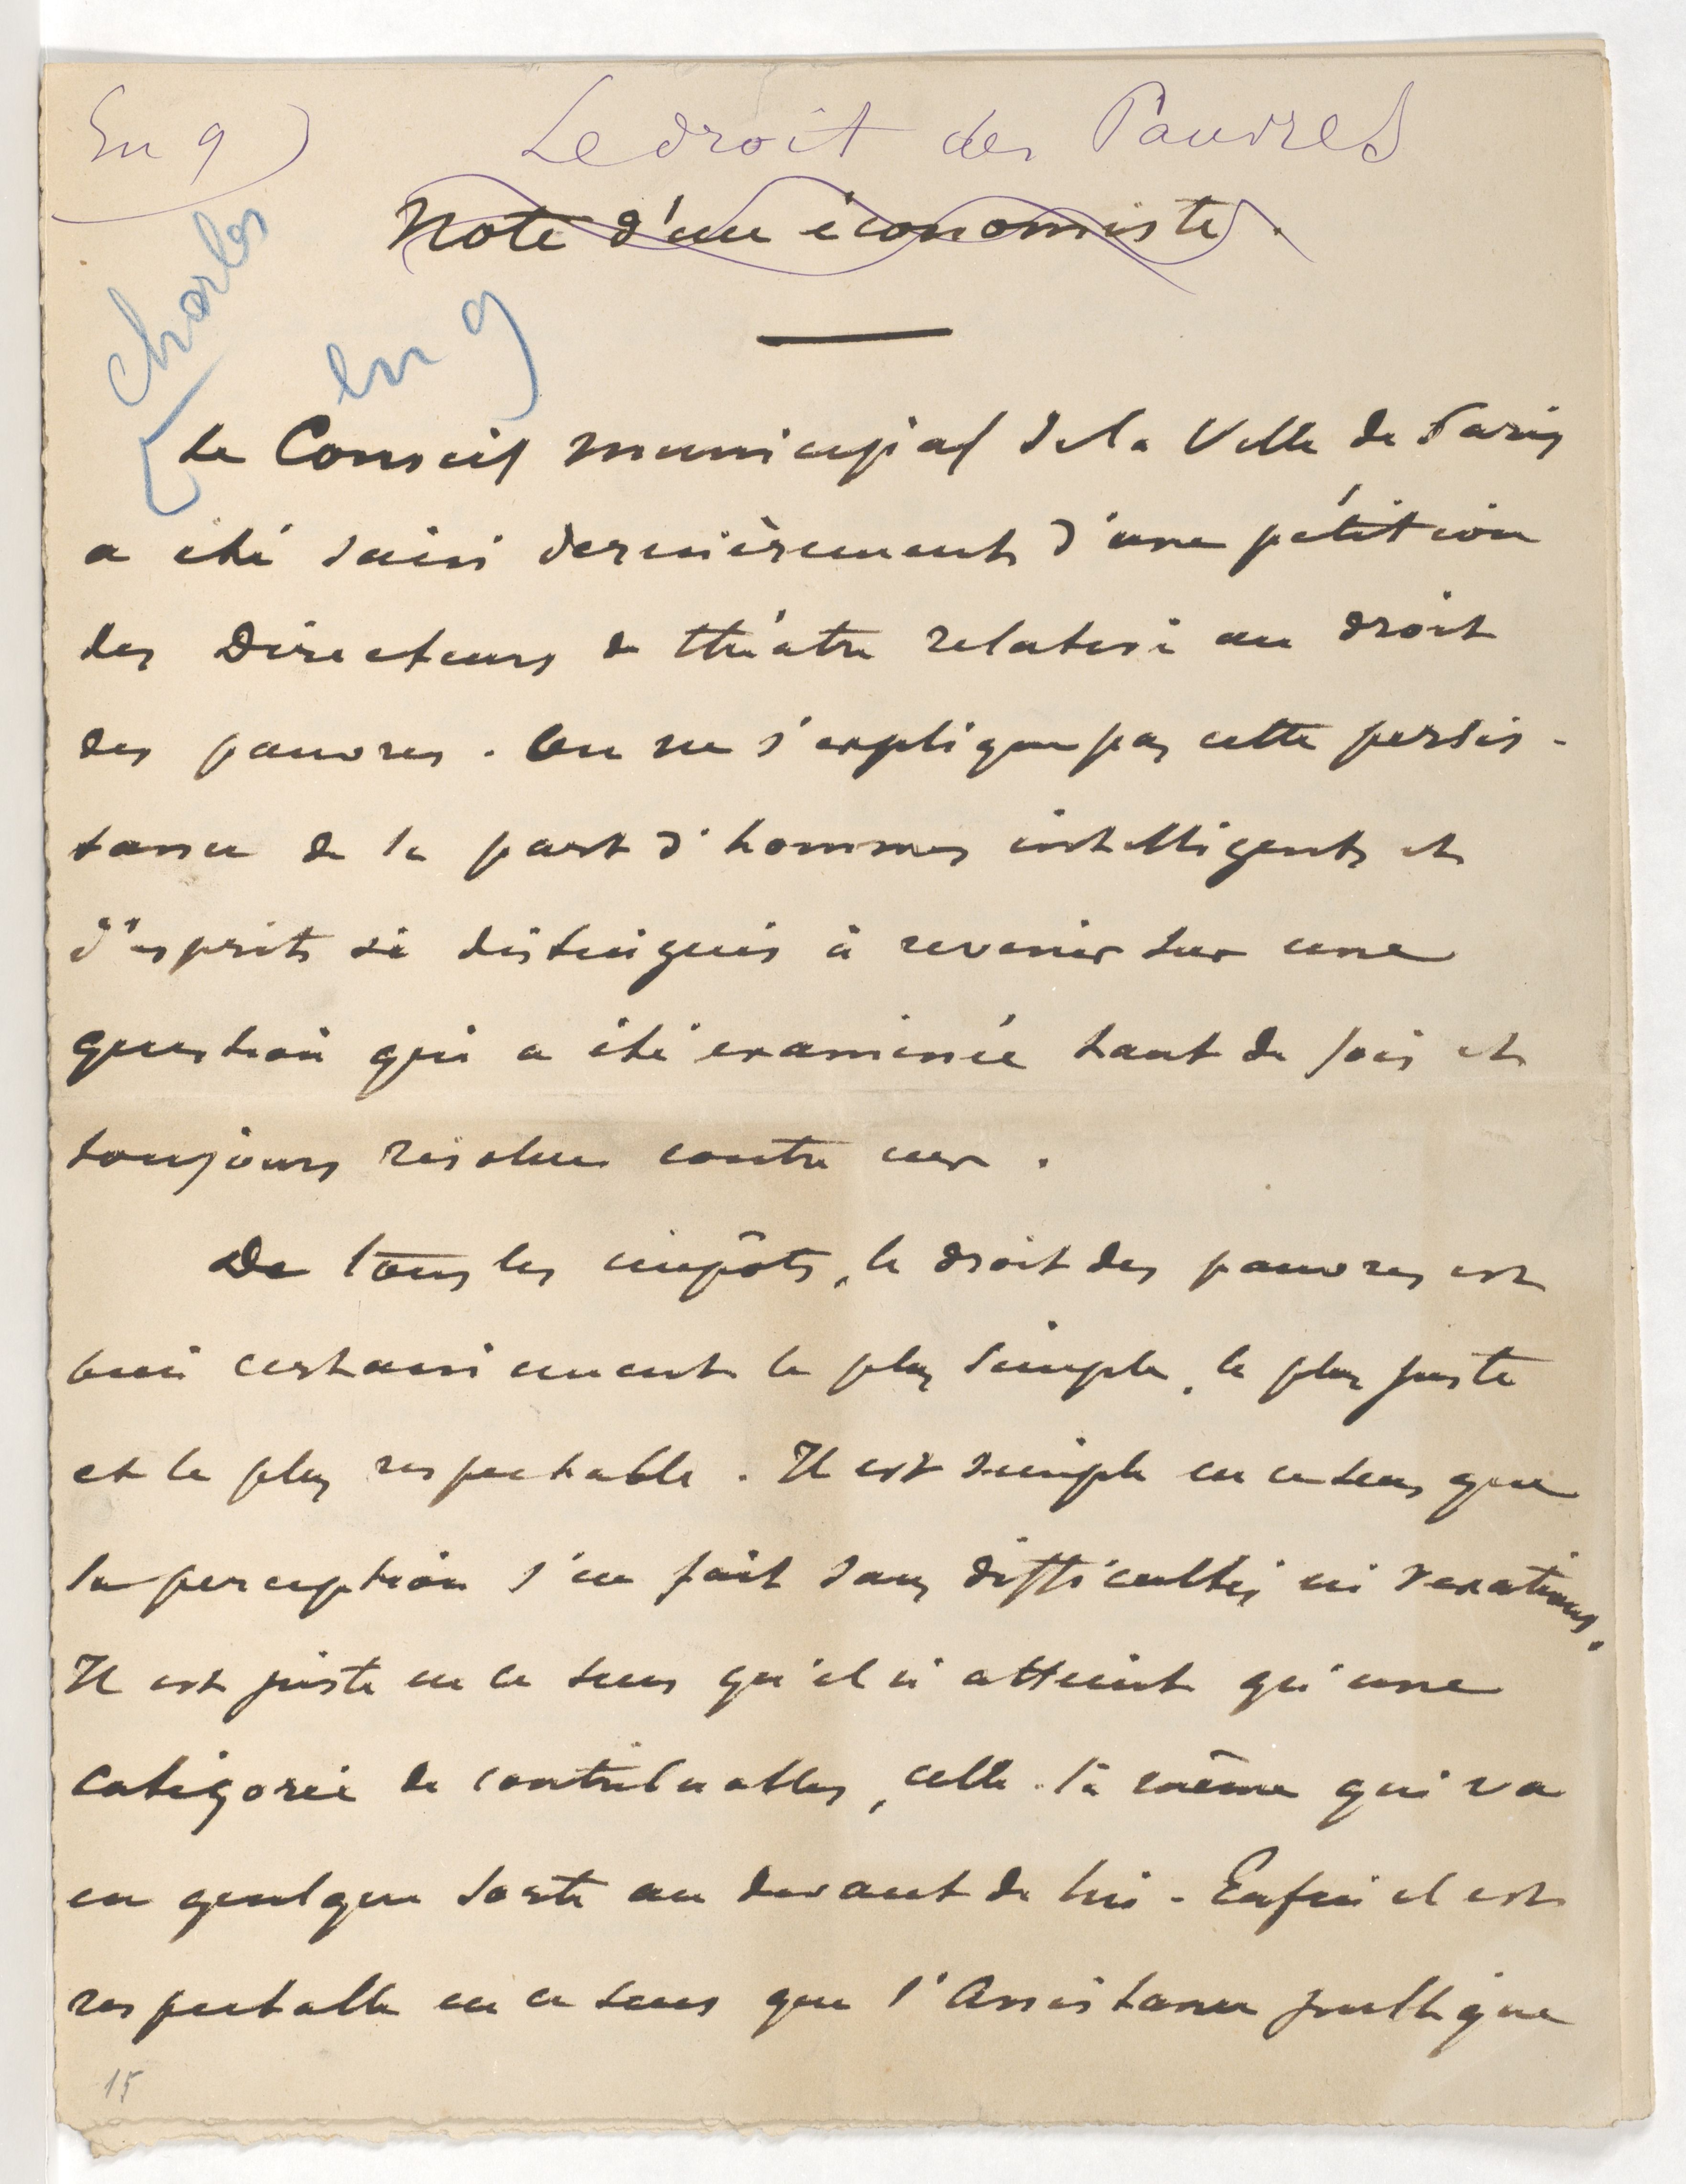 En 9
Le droit des Pauvres
Note d'un économiste.
Charles
en 9
Le Conseil municipal de la Ville de Paris
a été saisi dernièrement d'une pétition
des Directeurs de théâtre relative au droit
des pauvres. On ne s'explique pas cette persis-
tance de la part d'hommes intelligents et
d'esprits si distingués à revenir sur une
question qui a été examinée tant de fois et
toujours résolue contre eux.
De tous les impôts, le droit des pauvres est
bien certainement le plus simple, le plus juste
et le plus respectable. Il est simple en ce sens que
la perception s'en fait sans difficultés ni vexations.
Il est juste en ce sens qu'il n'atteint qu'une
catégorie de contribuables, celle-là même qui va
en quelque sorte au devant de lui. Enfin il est
respectable en ce sens que l'Assistance publique
15